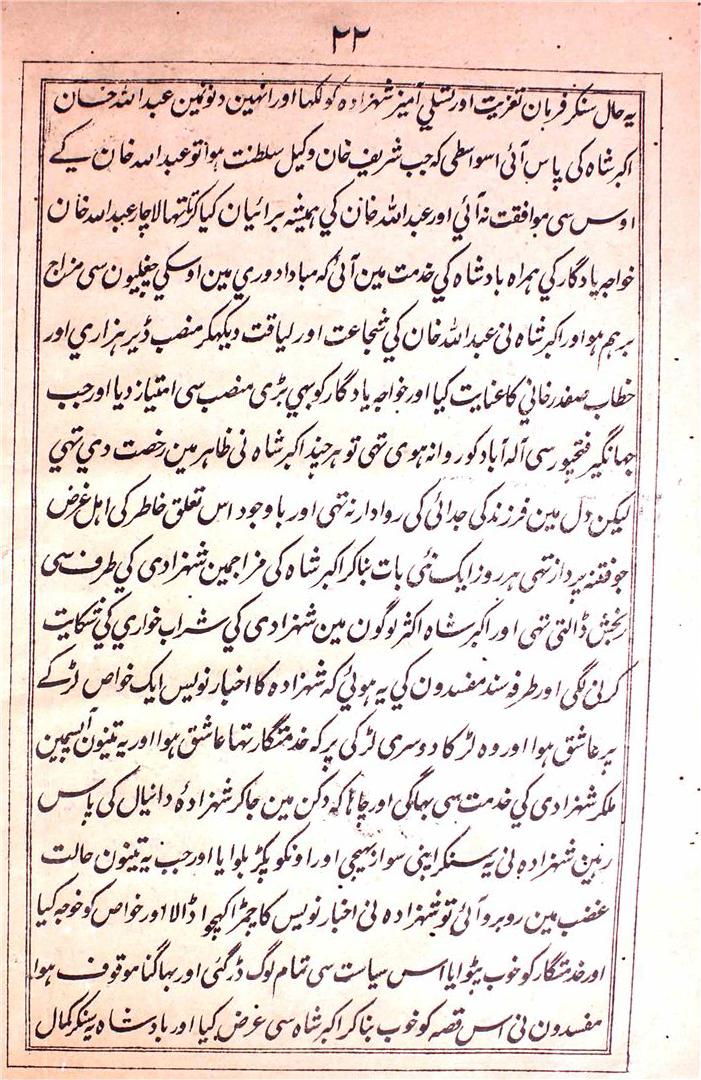 ۲۲
یہ حال سنکر فرمان تعزیت اور تسلی آمیز شہزادہ کو لکھا اور انہین دنونمین عبد اللہ خان
اکبر شاہ کی پاس آئی اسواسطی کہ جب شریف خان وکیل سلطنت ہوا تو عبد اللہ خان کے
اوس سی موافقت نہ آئی اور عبد اللہ خان کی ہمیشہ برائیان کیا کرتا تھا لاچار عبد اللہ خان
خواجہ یادگار کی ہمراہ بادشاہ کی خدمت مین آئی کہ مبادا دوری مین اوسکی چغلیون سی مزاج
برہم ہو اور اکبر شاہ نی عبد اللہ خان کی شجاعت اور لیاقت دیکھکر منصب ڈیڑ ہزاری اور
خطاب صفدر خانی کا عنایت کیا اور خواجہ یادگار کو بھی بڑی منصب سی امتیاز دیا اور جب
جہانگیر فتحپور سی آلہ آباد کو روانہ ہوی تھی تو ہر چند اکبر شاہ نی ظاہر مین رخصت دی تھی
لیکن دل مین فرزند کی جدائی کی روادار نہ تھی اور باوجود اس تعلق خاطر کی اہل غرض
جو فتنہ پرداز تھی ہر روز ایک نئی بات بناکر اکبر شاہ کی مزاجمین شہزادی کی طرف سی
رنجش ڈالتی تھی اور اکبر شاہ اکثر لوگون مین شہزادی کی شراب خواری کی شکایت
کرنی لگی اور طرفہ سند مفسدون کی یہ ہوئی کہ شہزادہ کا اخبار نویس ایک خواص لڑکے
پر عاشق ہوا اور وہ لڑکا دوسری لڑکی پر کہ خدمتگار تھا عاشق ہوا اور یہ تینون آپسمین
ملکر شہزادی کی خدمت سی بھاگی اور چاہا کہ دکن مین جاکر شہزادۂ دانیال کی پاس
رہین شہزادہ نی یہ سنکر اپنی سوار بھیجی اور اونکو پکڑ بلوایا اور جب یہ تینون حالت
غضب مین روبرو آئی تو شہزادہ نی اخبار نویس کا چمڑا کھچوا ڈالا اور خواص کو خوجہ کیا
اور خدمتگار کو خوب پٹوایا اس سیاست سی تمام لوگ ڈر گئی اور بھاگنا موقوف ہوا
مفسدون نی اس قصہ کو خوب بناکر اکبر شاہ سی عرض کیا اور بادشاہ یہ سنکر کمال